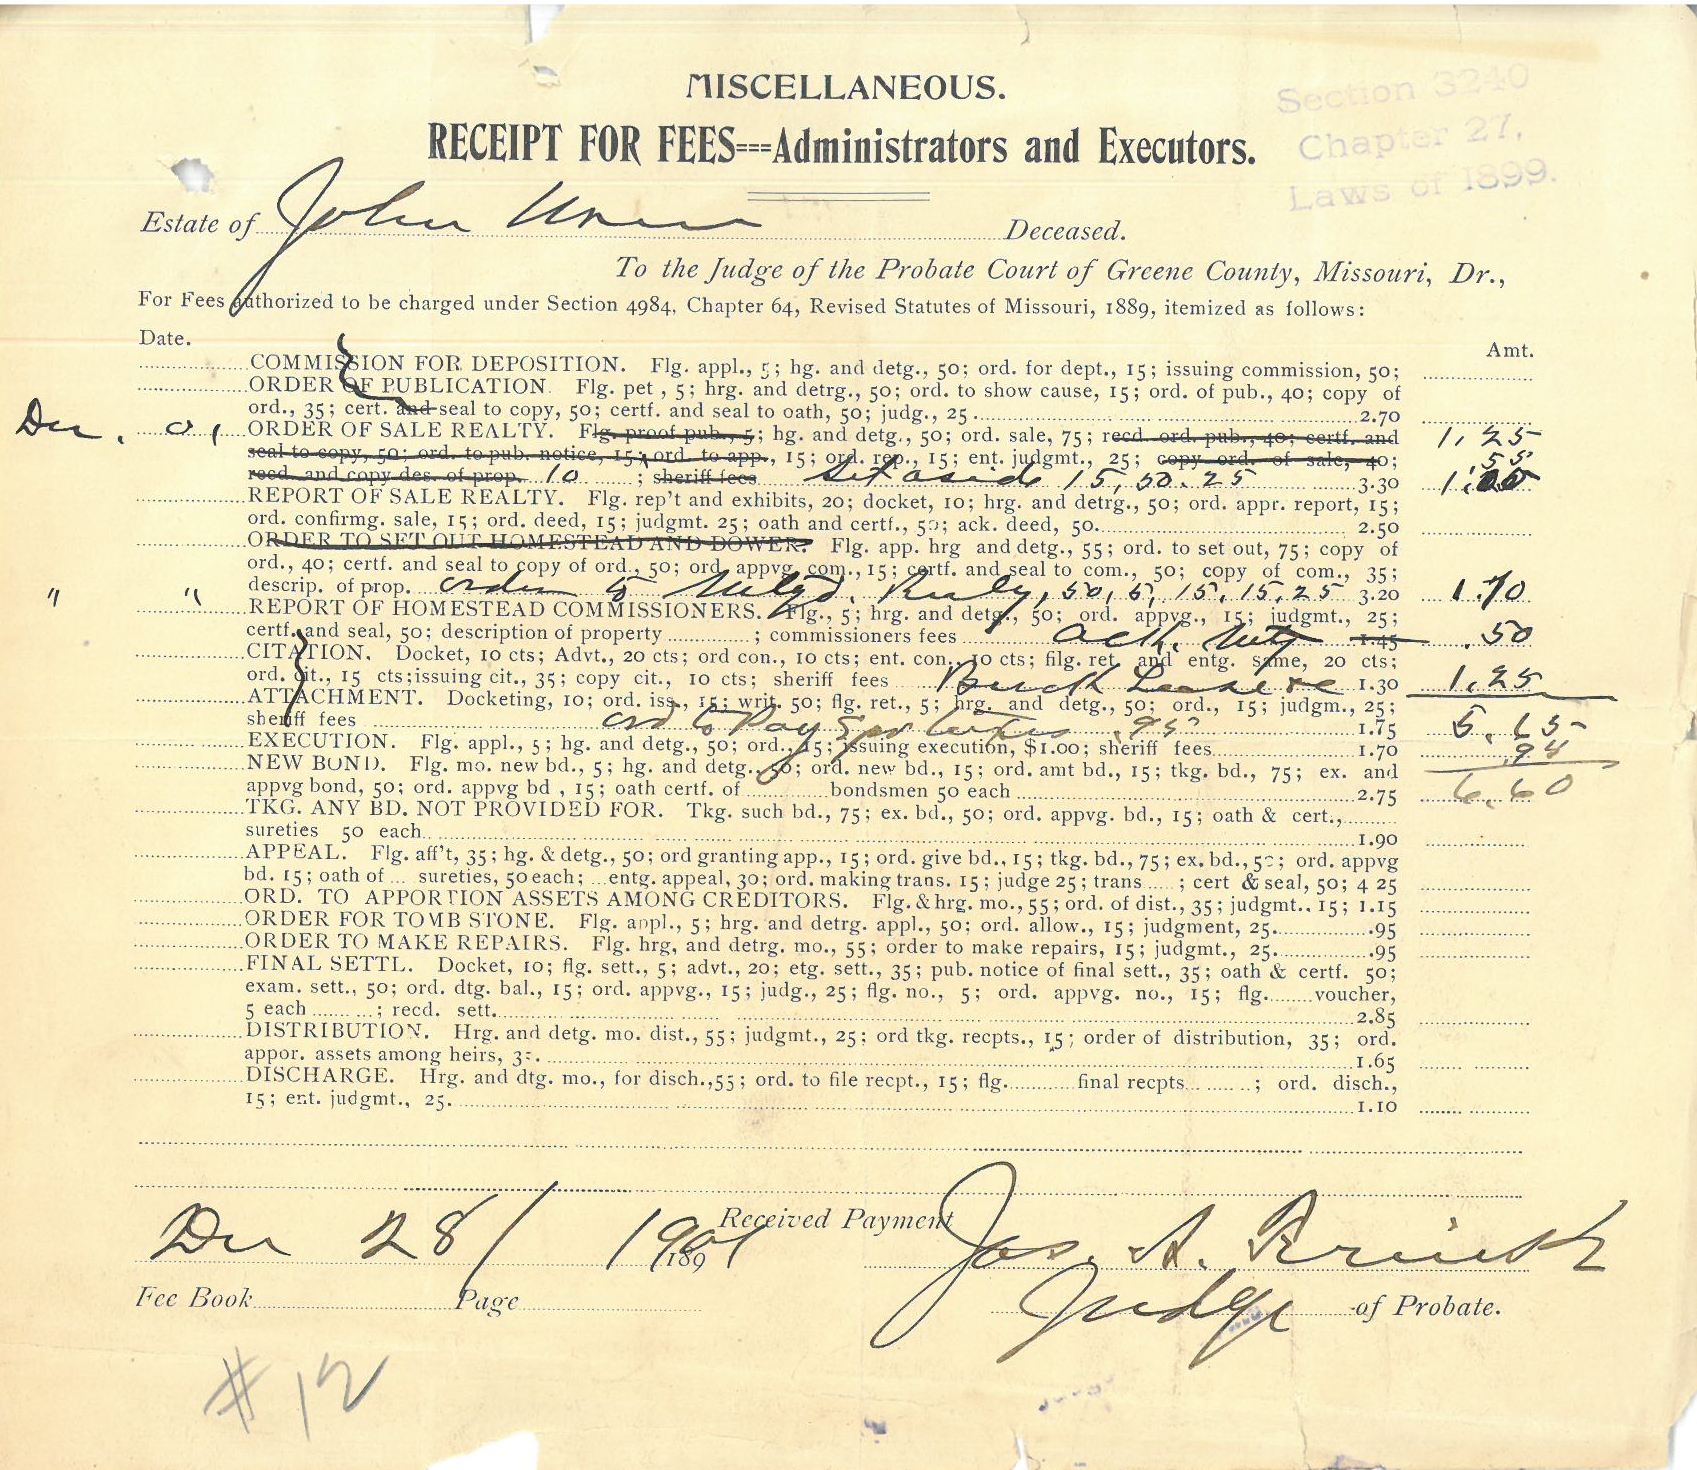 MISCELLANEOUS.
Section 3240
Chapter 27,
Laws of 1899.
RECEIPT FOR FEES===Administrators and Executors.
Estate of John Deceased.
To the Judge of the Probate Court of Greene County, Missouri, Dr.,
For Fees authorized to be charged under Section 4984, Chapter 64, Revised Statutes of Missouri, 1889, itemized as follows:
Date. Amt.
COMMISSION FOR DEPOSITION. Flg. appl., 5; hg. and detg., 50; ord. for dept., 15; issuing commission, 50;
ORDER OF PUBLICATION. Flg. pet, 5; hrg. and detrg., 50; ord. to show cause, 15; ord. of pub., 40; copy of
ord., 35; cert. and seal to copy, 50; certf. and seal to oath, 50; judg., 25 2.70
ORDER OF SALE REALTY. Flg. proof pub., 5; hg. and detg., 50; ord. sale, 75; recd. ord. pub., 40; certf. and 1.25
seal to copy, 50; ord. to pub. notice, 15; ord. to app., 15; ord. rep., 15; ent. judgmt., 25; copy ord. of sale, 40; 55
recd. and copy des. of prop. 10 ; sheriff fees set aside 15, 50. 25 3.30
REPORT OF SALE REALTY. Flg. rep't and exhibits, 20; docket, 10; hrg. and detrg., 50; ord. appr. report, 15;
ord. confirmg. sale, 15; ord. deed, 15; judgmt. 25; oath and certf., 50; ack. deed, 50. 2.50
ORDER TO SET OUT HOMESTEAD AND DOWER. Flg. app. hrg and detg., 55; ord. to set out, 75; copy of
ord., 40; certf. and seal to copy of ord., 50; ord appvg. com., 15; certf. and seal to com., 50; copy of com., 35;
descrip. of prop. order to Realy, 50, 5, 15, 15, 25 3.20 1.10
" " REPORT OF HOMESTEAD COMMISSIONERS. Flg., 5; hrg. and detg., 50; ord. appvg., 15; judgmt., 25;
certf. and seal, 50; description of property ; commissioners fees ack. 1.45 .50
CITATION. Docket, 10 cts; Advt., 20 cts; ord con., 10 cts; ent. con., 10 cts; filg. ret. and entg. same, 20 cts;
ord. cit., 15 cts; issuing cit., 35; copy cit., 10 cts; sheriff fees 1.30 1.25
ATTACHMENT. Docketing, 10; ord. iss., 15; writ. 50; flg. ret., 5; hrg. and detg., 50; ord., 15; judgm., 25;
sheriff fees ord to Pay .95 1.75 5.65
EXECUTION. Flg. appl., 5; hg. and detg., 50; ord., 15; issuing execution, $1.00; sheriff fees. 1.70 .94
NEW BOND. Flg. mo. new bd., 5; hg. and detg., 50; ord. new bd., 15; ord. amt bd., 15; tkg. bd., 75; ex. and
appvg bond, 50; ord. appvg bd, 15; oath certf. of bondsmen 50 each 2.75 6.60
TKG. ANY BD. NOT PROVIDED FOR. Tkg. such bd., 75; ex. bd., 50; ord. appvg. bd., 15; oath & cert.,
sureties 50 each. 1.90
APPEAL. Flg. aff't, 35; hg. & detg., 50; ord granting app., 15; ord. give bd., 15; tkg. bd., 75; ex. bd., 50; ord. appvg
bd. 15; oath of sureties, 50 each; entg. appeal, 30; ord. making trans. 15; judge 25; trans ; cert & seal, 50; 4 25
ORD. TO APPORTION ASSETS AMONG CREDITORS. Flg. & hrg. mo., 55; ord. of dist., 35; judgmt., 15; 1.15
ORDER FOR TOMB STONE. Flg. appl., 5; hrg. and detrg. appl., 50; ord. allow., 15; judgment, 25. .95
ORDER TO MAKE REPAIRS. Flg. hrg, and detrg. mo., 55; order to make repairs, 15; judgmt., 25. .95
FINAL SETTL. Docket, 10; flg. sett., 5; advt., 20; etg. sett., 35; pub. notice of final sett., 35; oath & certf. 50;
exam. sett., 50; ord. dtg. bal., 15; ord. appvg., 15; judg., 25; flg. no., 5; ord. appvg. no., 15; flg. voucher,
5 each ; recd. sett. 2.85
DISTRIBUTION. Hrg. and detg. mo. dist., 55; judgmt., 25; ord tkg. recpts., 15; order of distribution, 35; ord.
appor. assets among heirs, 1.65
DISCHARGE. Hrg. and dtg. mo., for disch., 55; ord. to file recpt., 15; flg. final recpts ; ord. disch.,
15; ent. judgmt., 25. 1.10
Dec 28/ 1901 189 Received Payment Jas. A.
Fee Book Page Judge of Probate.
#12